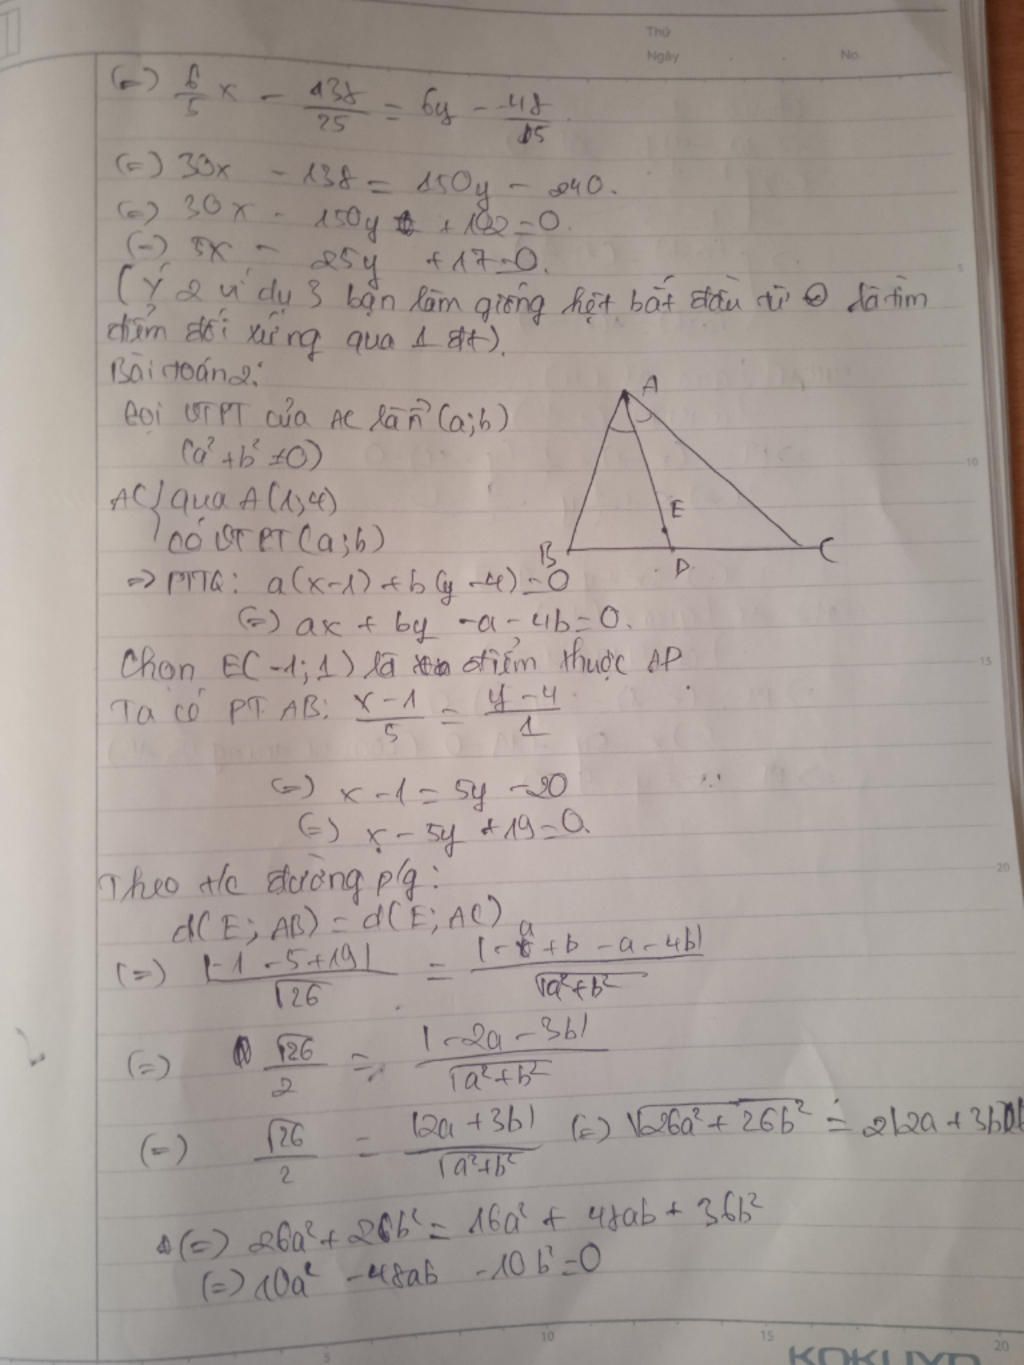 Thứ
Ngày No.
(=) 6/5 x - 138/25 = 6y - 48/15
(=) 30x - 138 = 150y - 240.
(=) 30x - 150y + 102 = 0.
(=) 5x - 25y + 17 = 0.
(Ý 2 ví dụ 3 bạn làm giống hệt bắt đầu từ là tìm
điểm đối xứng qua 1 đt).
Bài toán 2:
Gọi VTPT của AC là n⃗ (a;b)
(a² + b² ≠ 0)
AC { qua A(1;4)
có VTPT (a;b)
=> PTTQ: a(x-1) + b(y-4) = 0
(=) ax + by - a - 4b = 0.
Chọn E(-1;1) là điểm thuộc AD
Ta có PT AB: x-1/5 = y-4/1
(=) x - 1 = 5y - 20
(=) x - 5y + 19 = 0.
Theo t/c đường p/g:
d(E; AB) = d(E; AC)
(=) |-1 - 5 + 19|/√26 = |-a + b - a - 4b|/√a²+b²
(=) √26/2 = |-2a - 3b|/√a²+b²
(=) √26/2 = |2a + 3b|/√a²+b² (=) √26a² + 26b² = 2|2a + 3b|
(=) 26a² + 26b² = 16a² + 48ab + 36b²
(=) 10a² - 48ab - 10b² = 0
A
E
B
D
C
5
10
15
20
5 10 15 20
KOKUYO